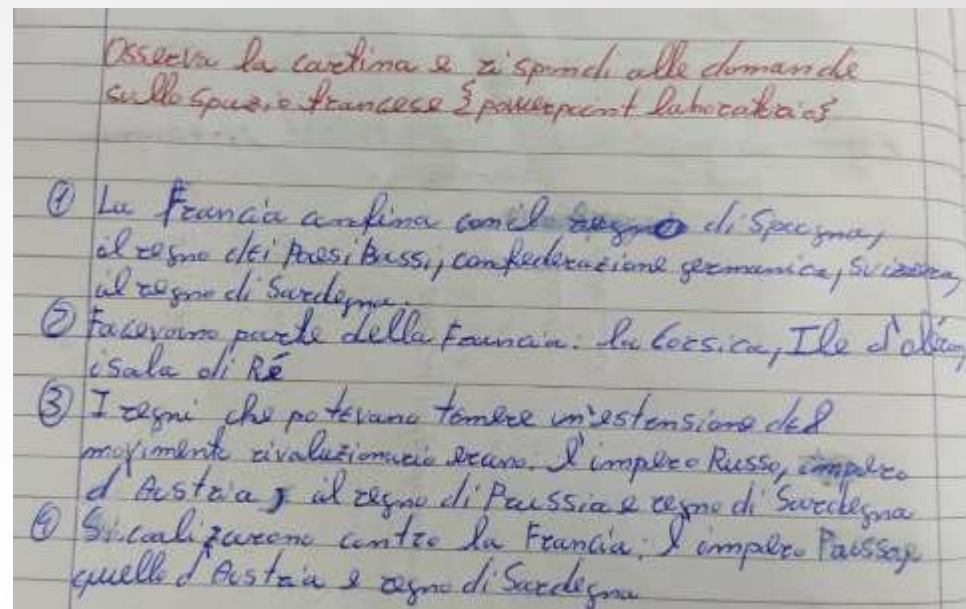 Osserva la cartina e rispondi alle domande
sullo spazio francese {powerpoint laboratorio}
① La Francia confina con il regno di Spagna,
il regno dei Paesi Bassi, confederazione germanica, Svizzera,
il regno di Sardegna.
② Facevano parte della Francia: la Corsica, Ile d'oléron,
isola di Ré
③ I regni che potevano temere un'estensione del
movimento rivoluzionario erano: l'impero Russo, impero
d'Austria, il regno di Prussia e regno di Sardegna
④ Si coalizzarono contro la Francia: l'impero
quello d'Austria e regno di Sardegna